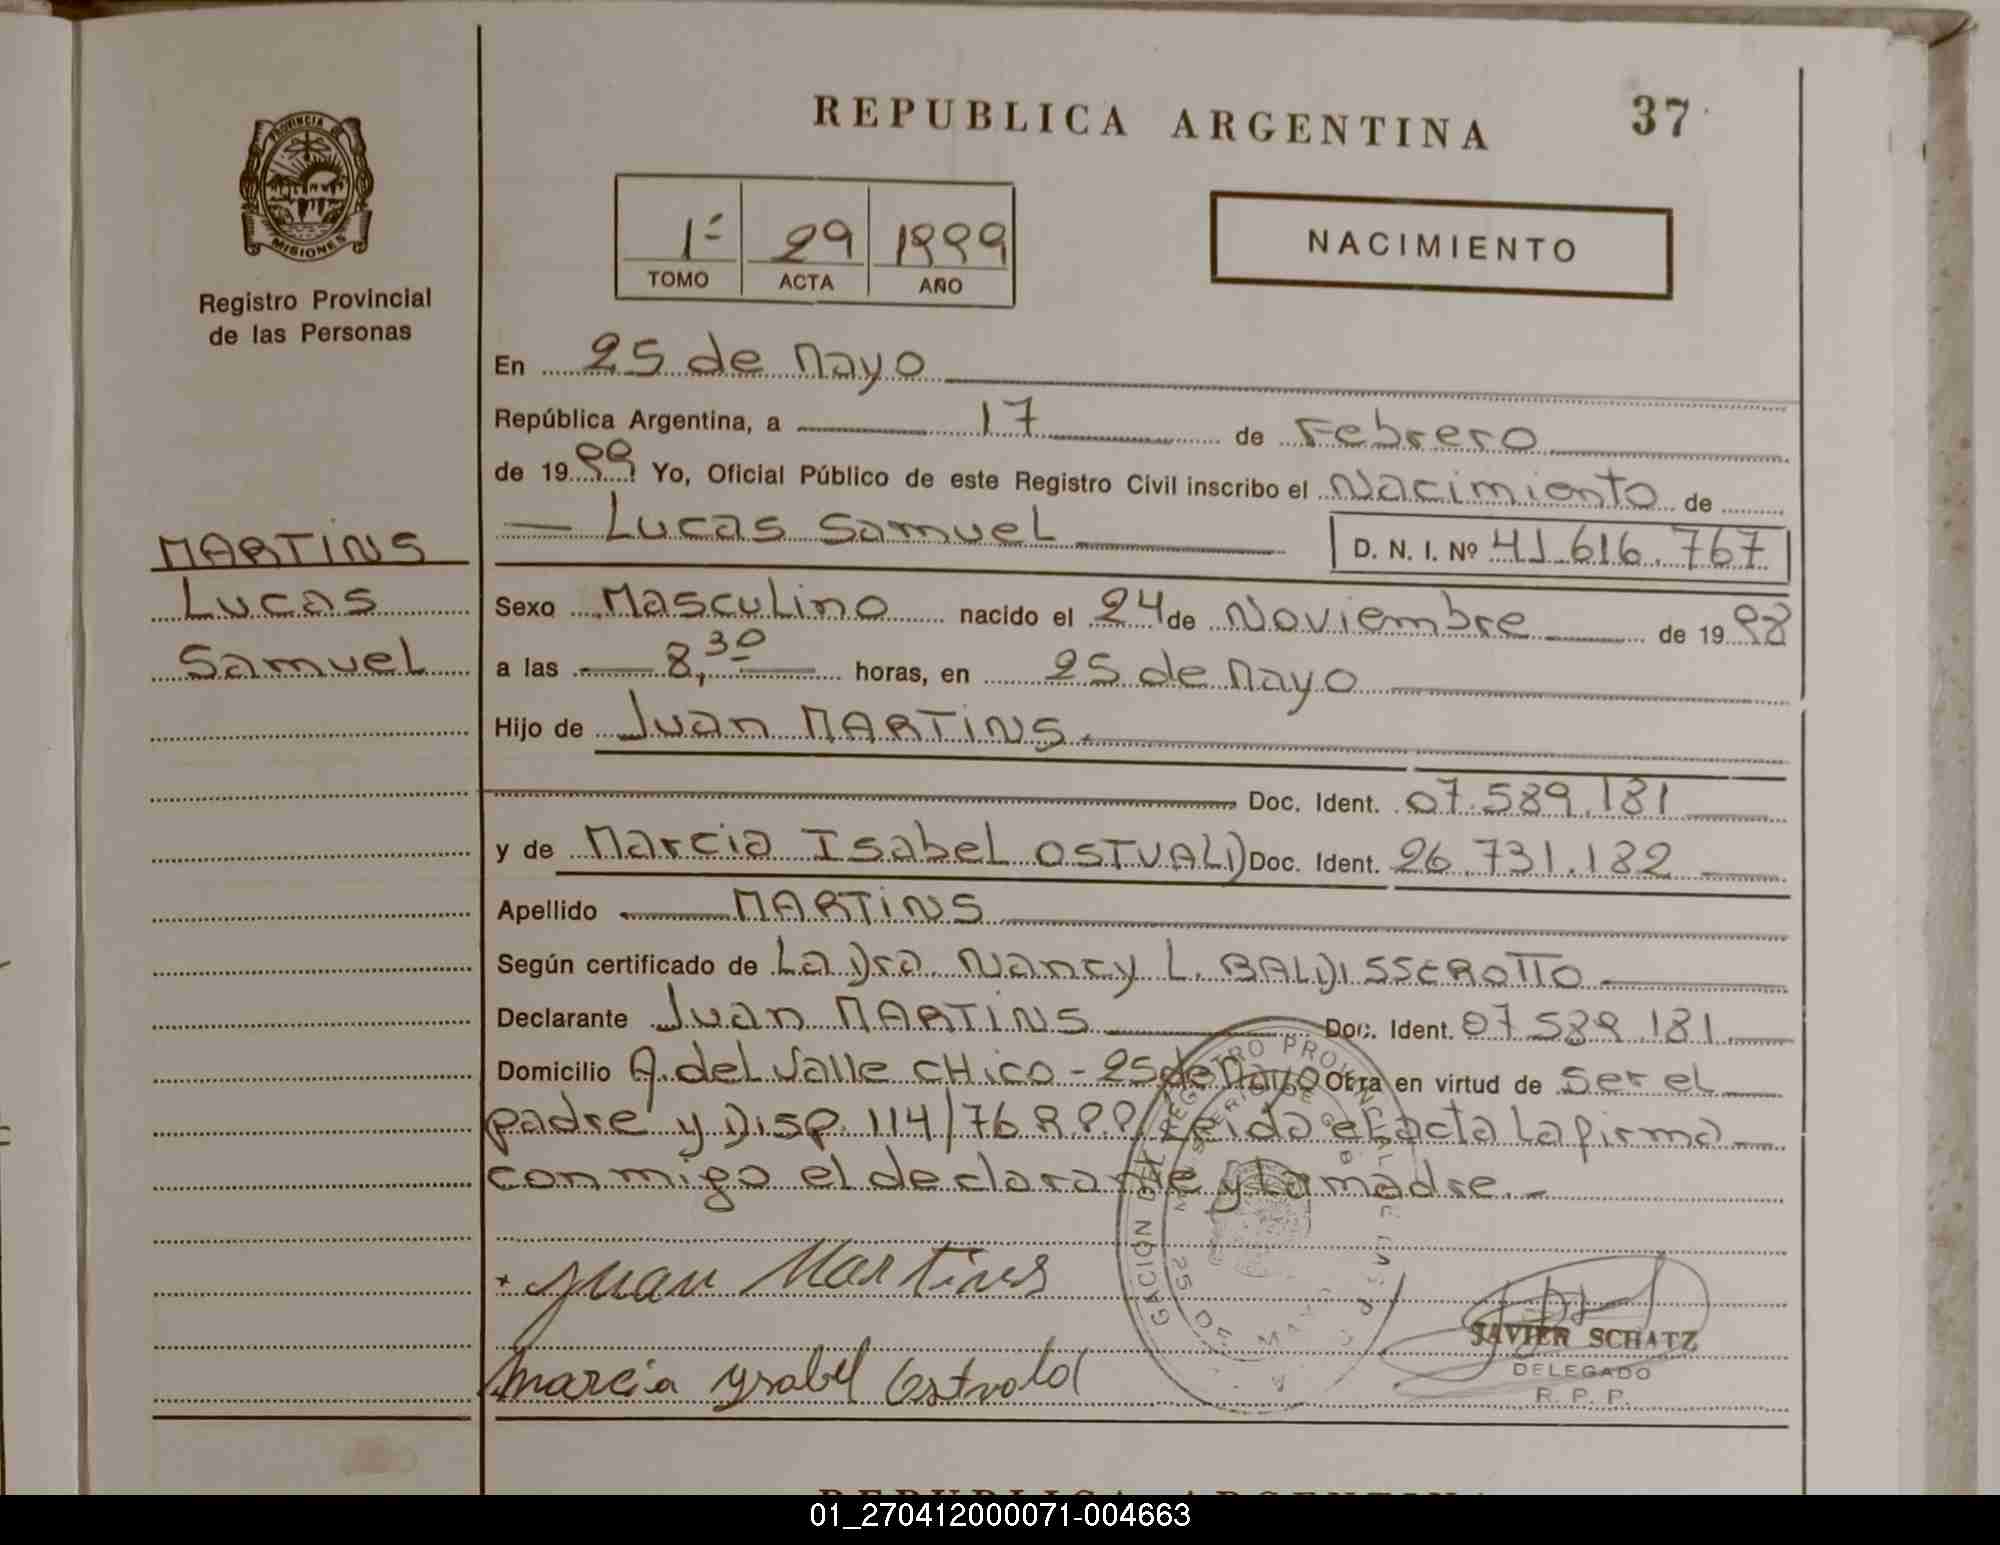 REPUBLICA ARGENTINA
37
PROVINCIA DE
MISIONES
Registro Provincial
de las Personas
1º 29 1999
TOMO ACTA AÑO
NACIMIENTO
En 25 de Mayo
República Argentina, a 17 de Febrero
de 1999 Yo, Oficial Público de este Registro Civil inscribo el Nacimiento de
Lucas Samuel
D. N. I. Nº 41.616.767
MARTINS
Lucas
Samuel
Sexo Masculino nacido el 24 de Noviembre de 1998
a las 8,30 horas, en 25 de Mayo
Hijo de Juan MARTINS.
Doc. Ident. 07.589.181
y de Marcia Isabel OSTVALD Doc. Ident. 26.731.182
Apellido MARTINS
Según certificado de La Dra. Nancy L. BALDISSEROTTO
Declarante Juan MARTINS Doc. Ident. 07.589.181
Domicilio A. del Valle CHico - 25 de Mayo Otra en virtud de Ser el
padre y Disp. 114/76 R.P.P. Leida el acta La firma
con migo el declarante y La madre.-
Juan Martins
Marcia Ysabel Ostvald
JAVIER SCHATZ
DELEGADO
R. P. P.
REPUBLICA ARGENTINA
01_270412000071-004663